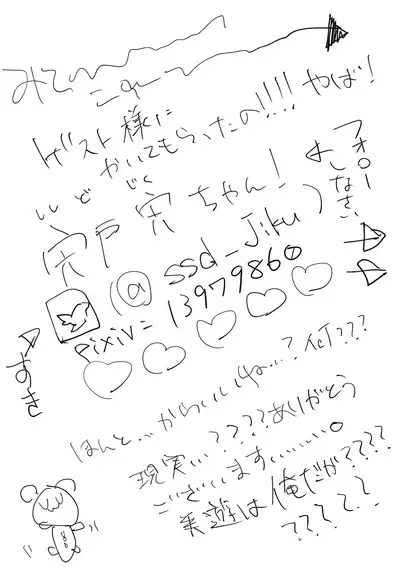 みて〜〜
この〜
ゲスト様に
かいてもらったの!!!! やば!
ししど じく
宍戸 宍ちゃん!
フォローしなさい
(@ssd_Jiku)
pixiv= 13979860
♡♡♡♡♡
ほんと...かわいいね...?何???
現実...????ありがとう
ございます............。
美遊は俺だが????
?????